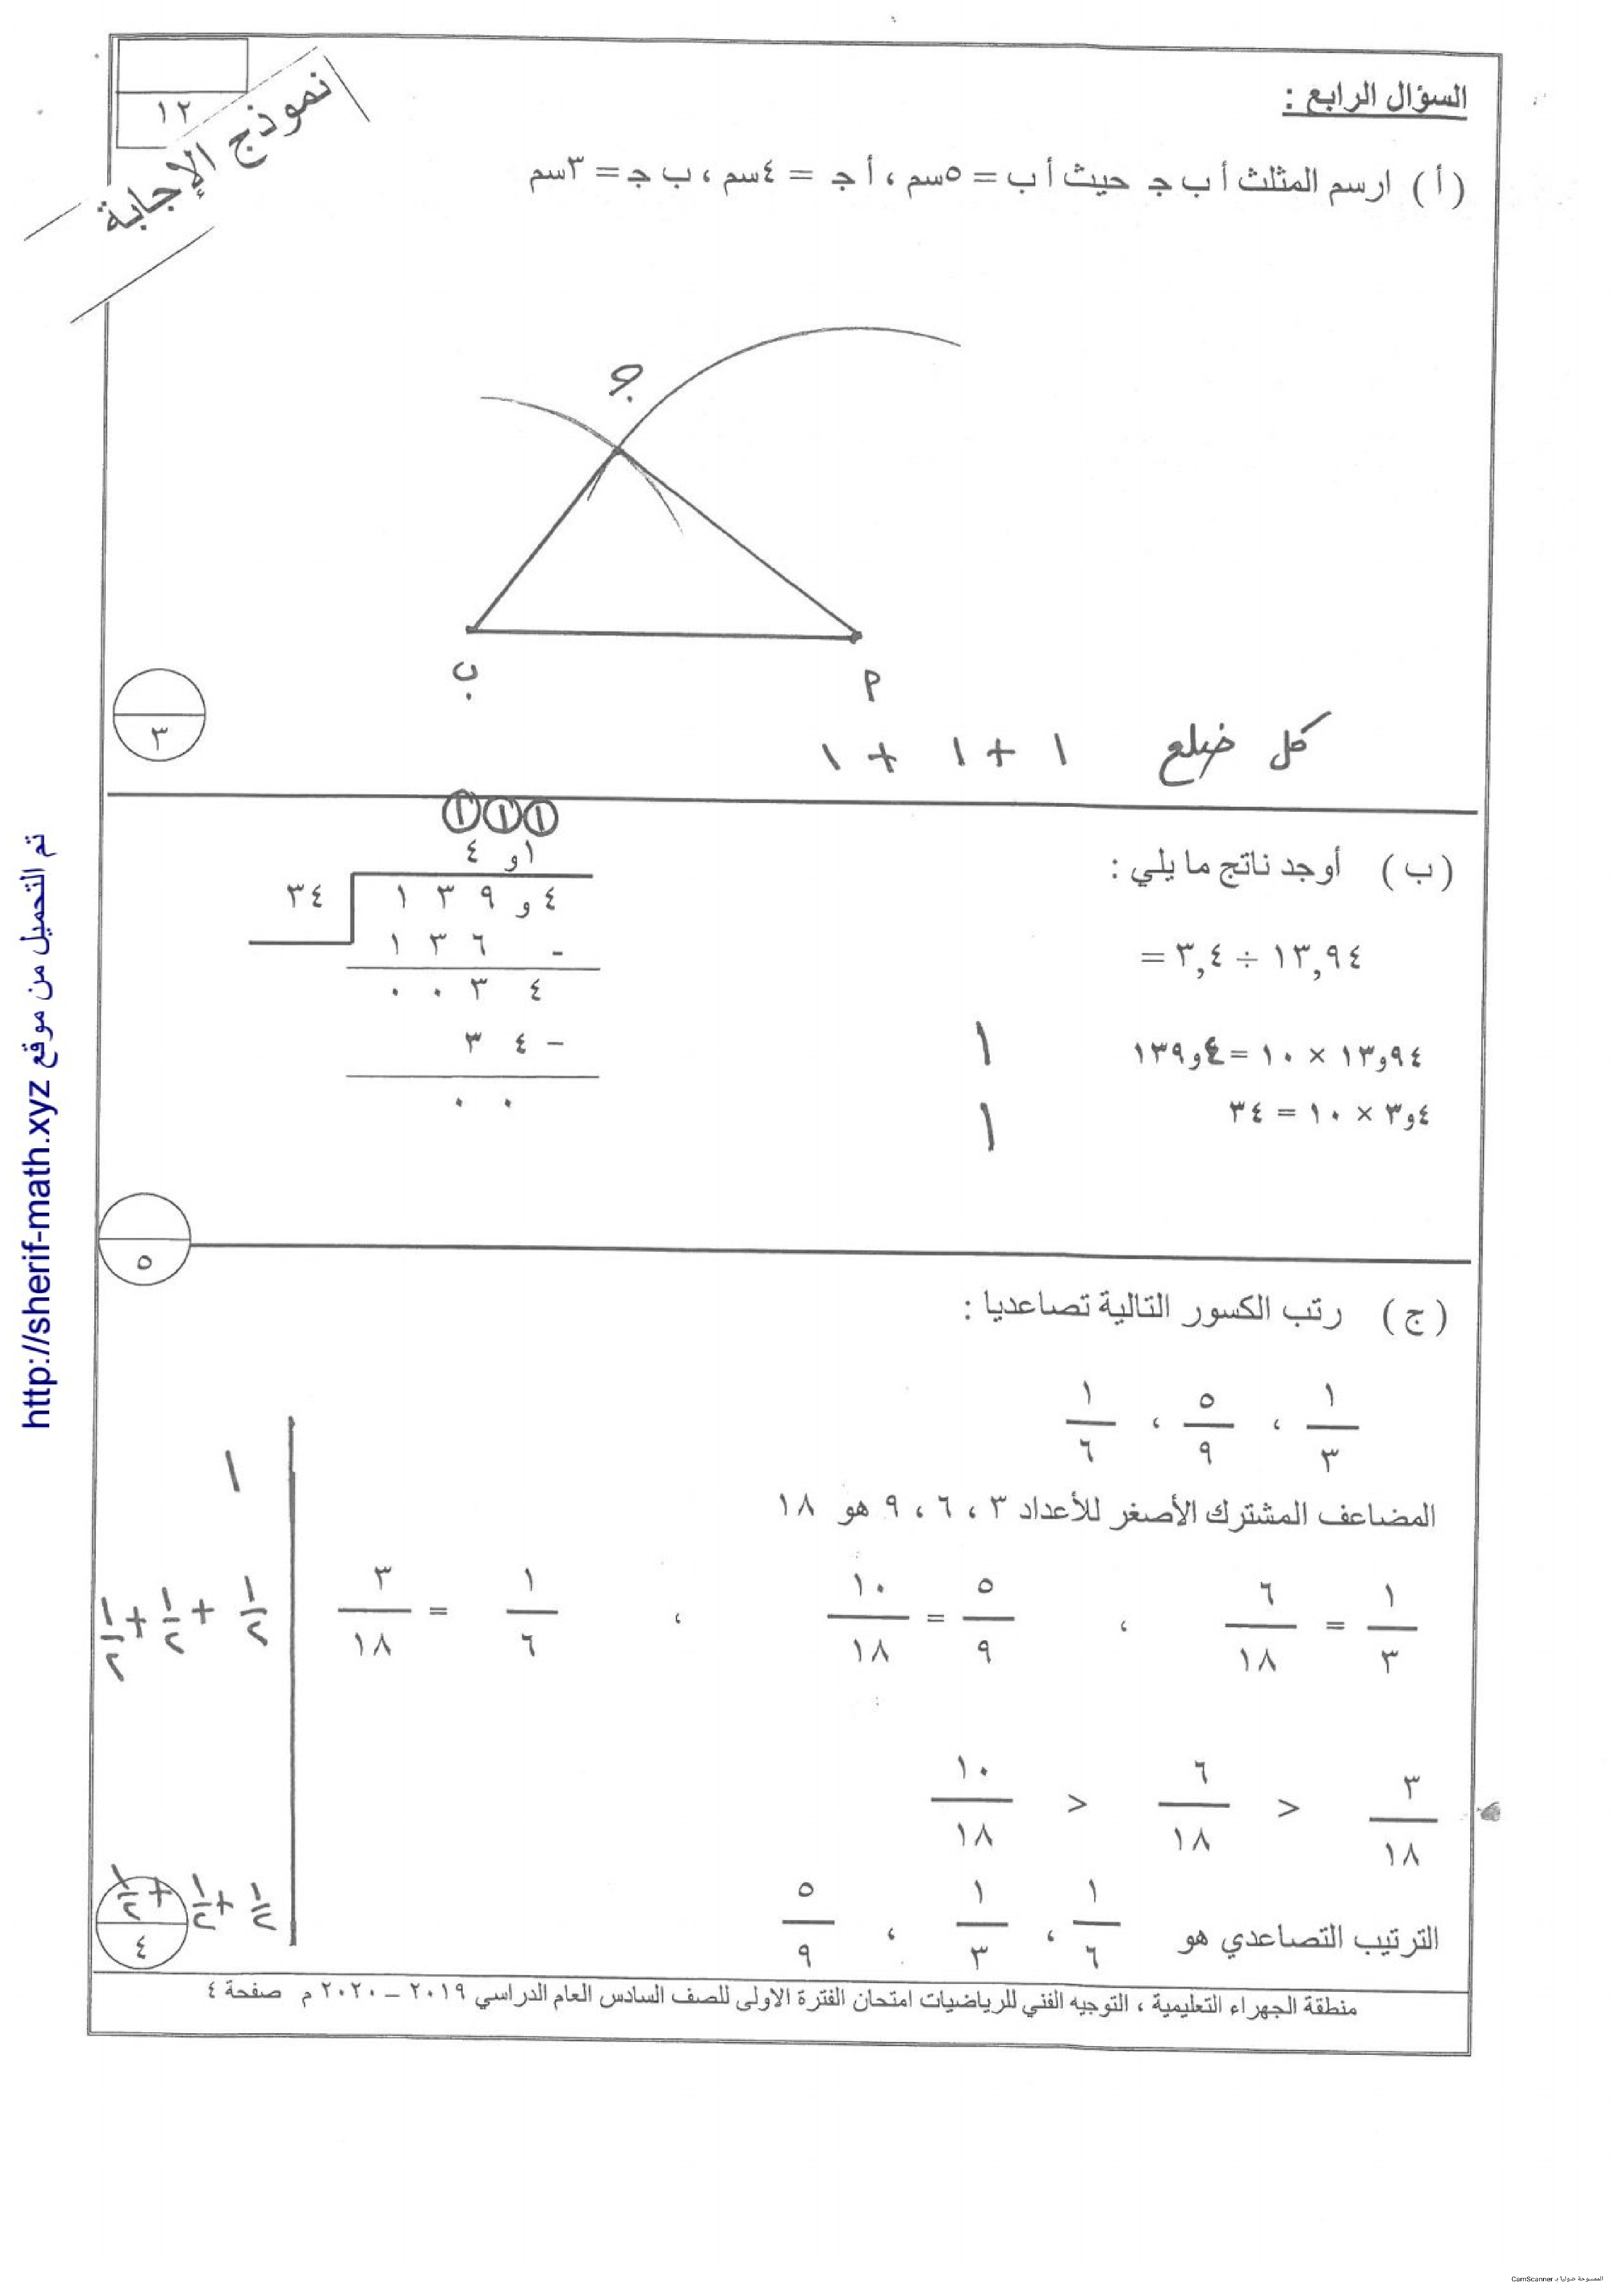 ١٢
نموذج الإجابة
السؤال الرابع :
( أ ) ارسم المثلث أ ب جـ حيث أ ب = ٥سم ، أ جـ = ٤سم ، ب جـ = ٣سم
جـ
ب
أ
كل ضلع ١ + ١ + ١
٣
( ب ) أوجد ناتج ما يلي :
١٣,٩٤ ÷ ٣,٤ =
٩٤و١٣ × ١٠ = ٤و١٣٩ ١
٤و٣ × ١٠ = ٣٤ ١
١ ١ ١
٤ و ١
٣٤ ١ ٣ ٩ و ٤
١ ٣ ٦ -
٠ ٠ ٣ ٤
٣ ٤ -
٠ ٠
٥
( ج ) رتب الكسور التالية تصاعديا :
١/٣ ، ٥/٩ ، ١/٦
المضاعف المشترك الأصغر للأعداد ٣ ، ٦ ، ٩ هو ١٨
١
١/٣ = ٦/١٨ ، ٥/٩ = ١٠/١٨ ، ١/٦ = ٣/١٨
١/٢ + ١/٢ + ١/٢
٣/١٨ > ٦/١٨ > ١٠/١٨
الترتيب التصاعدي هو ١/٦ ، ١/٣ ، ٥/٩
١/٢ + ١/٢ + ١/٢
٤
منطقة الجهراء التعليمية ، التوجيه الفني للرياضيات امتحان الفترة الاولى للصف السادس العام الدراسي ٢٠١٩ – ٢٠٢٠ م صفحة ٤
تم التحميل من موقع http://sherif-math.xyz
الممسوحة ضوئيا بـ CamScanner